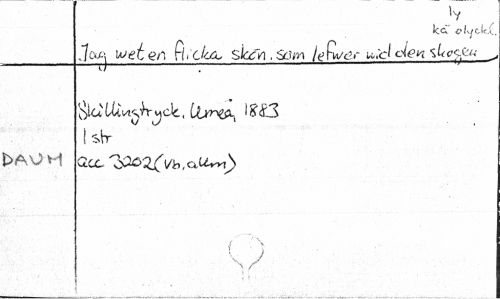 ly
kä olyckl.
Jag wet en flicka skön, som lefwer wid den skogen
Skillingtryck, Umeå, 1883
1 str
DAUM acc 3202 (vb, alkm)